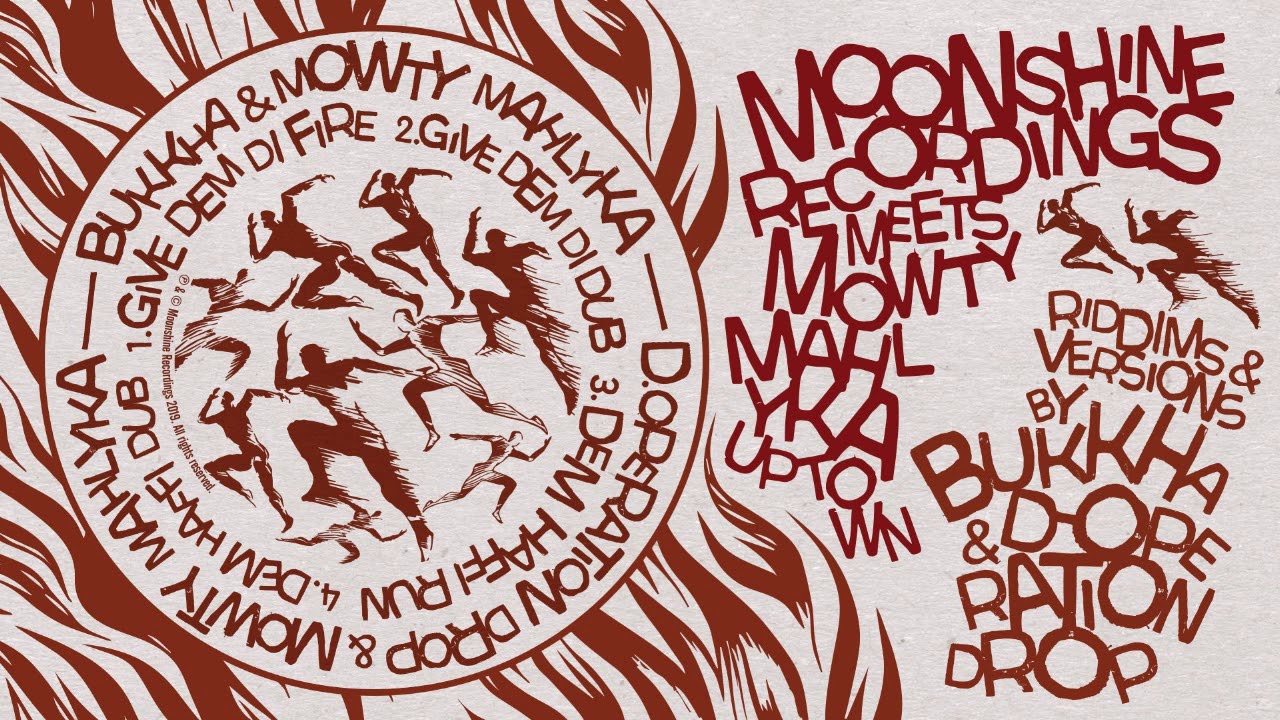 — BUKKHA & MOWTY MAHLYKA — D.OPERATION DROP & MOWTY MAHLYKA
1.GiVE DEM DI FiRE 2.GiVE DEM DI DUB 3.DEM HAFFI RUN 4.DEM HAFFI DUB
℗ & © Moonshine Recordings 2019. All rights reserved.
MOONSHiNE
RECORDINGS
MEETS
MOWTY
MAHL
YKA
UPTO
WN
RIDDIMS &
VERSIONS
BY
BUKKHA
& D-OPE
RATION
DROP